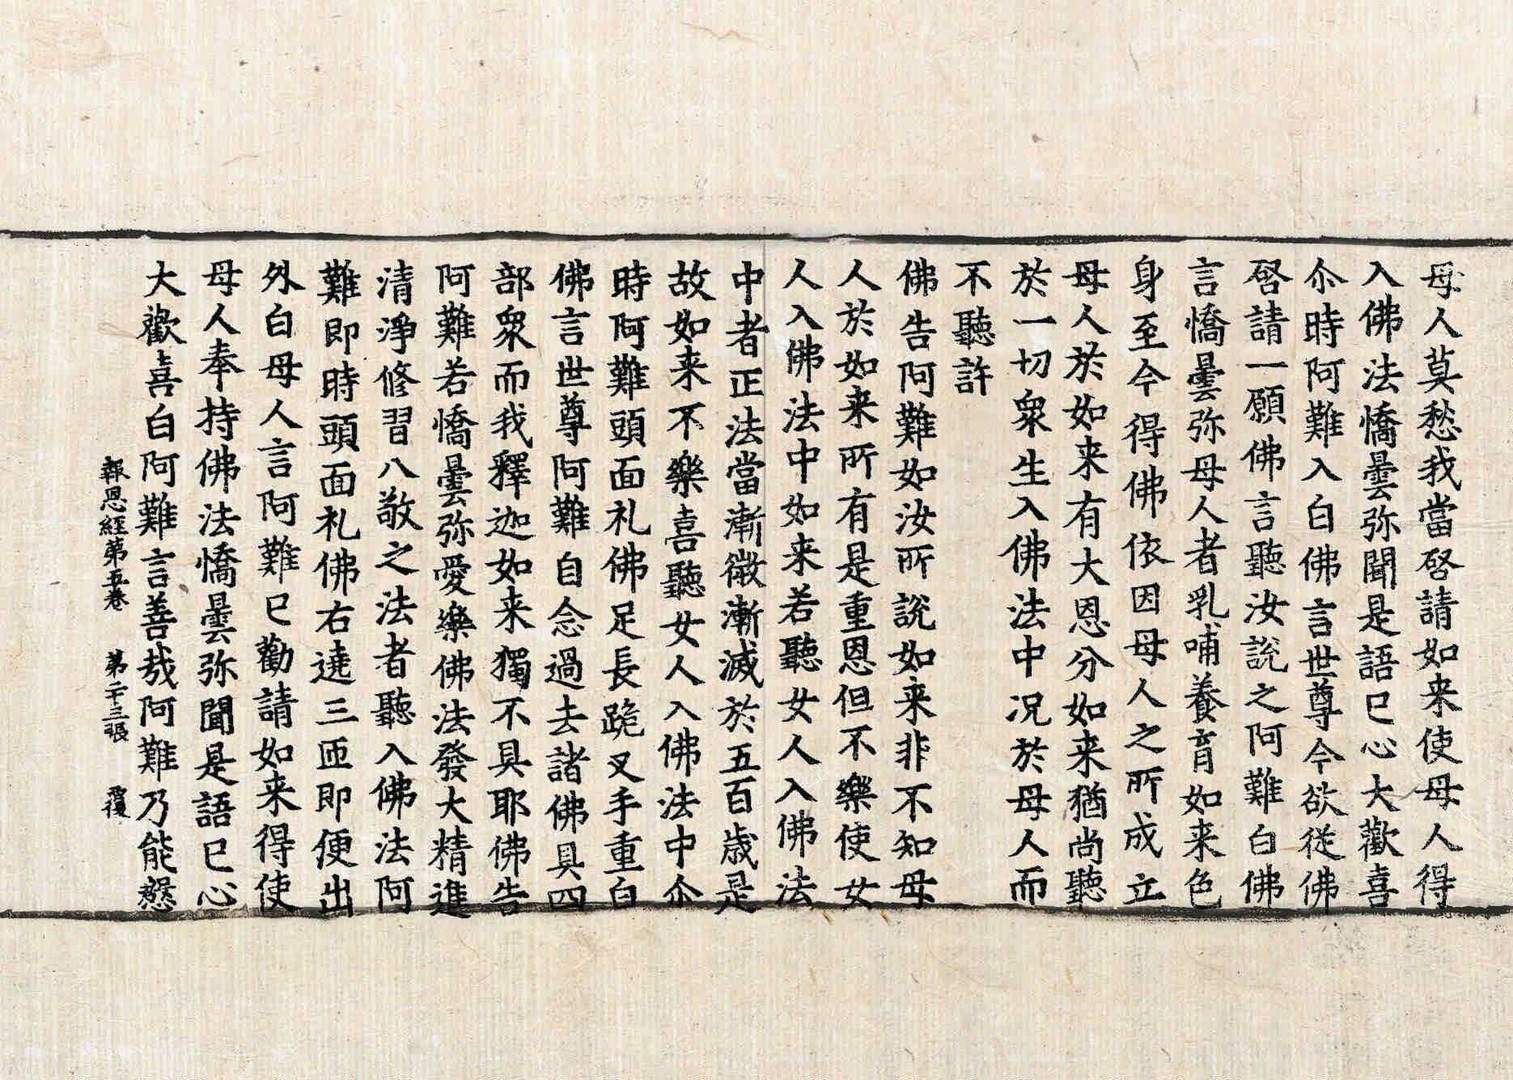 母人莫愁我當啓請如来使母人得
入佛法憍曇弥聞是語已心大歡喜
尒時阿難入白佛言世尊今欲從佛
啓請一願佛言聽汝說之阿難白佛
言憍曇弥母人者乳哺養育如来色
身至今得佛依因母人之所成立
母人於如来有大恩分如来猶尚聽
於一切衆生入佛法中况於母人而
不聽許
佛告阿難如汝所說如来非不知母
人於如来所有是重恩但不樂使女
人入佛法中如来若聽女人入佛法
中者正法當漸微漸滅於五百歲是
故如来不樂喜聽女人入佛法中尒
時阿難頭面礼佛足長跪叉手重白
佛言世尊阿難自念過去諸佛具四
部衆而我釋迦如来獨不具耶佛告
阿難若憍曇弥愛樂佛法發大精進
清淨修習八敬之法者聽入佛法阿
難即時頭面礼佛右遶三匝即便出
外白母人言阿難已勸請如来得使
母人奉持佛法憍曇弥聞是語已心
大歡喜白阿難言善哉阿難乃能慇
報恩經第五卷 第二十三張 覆